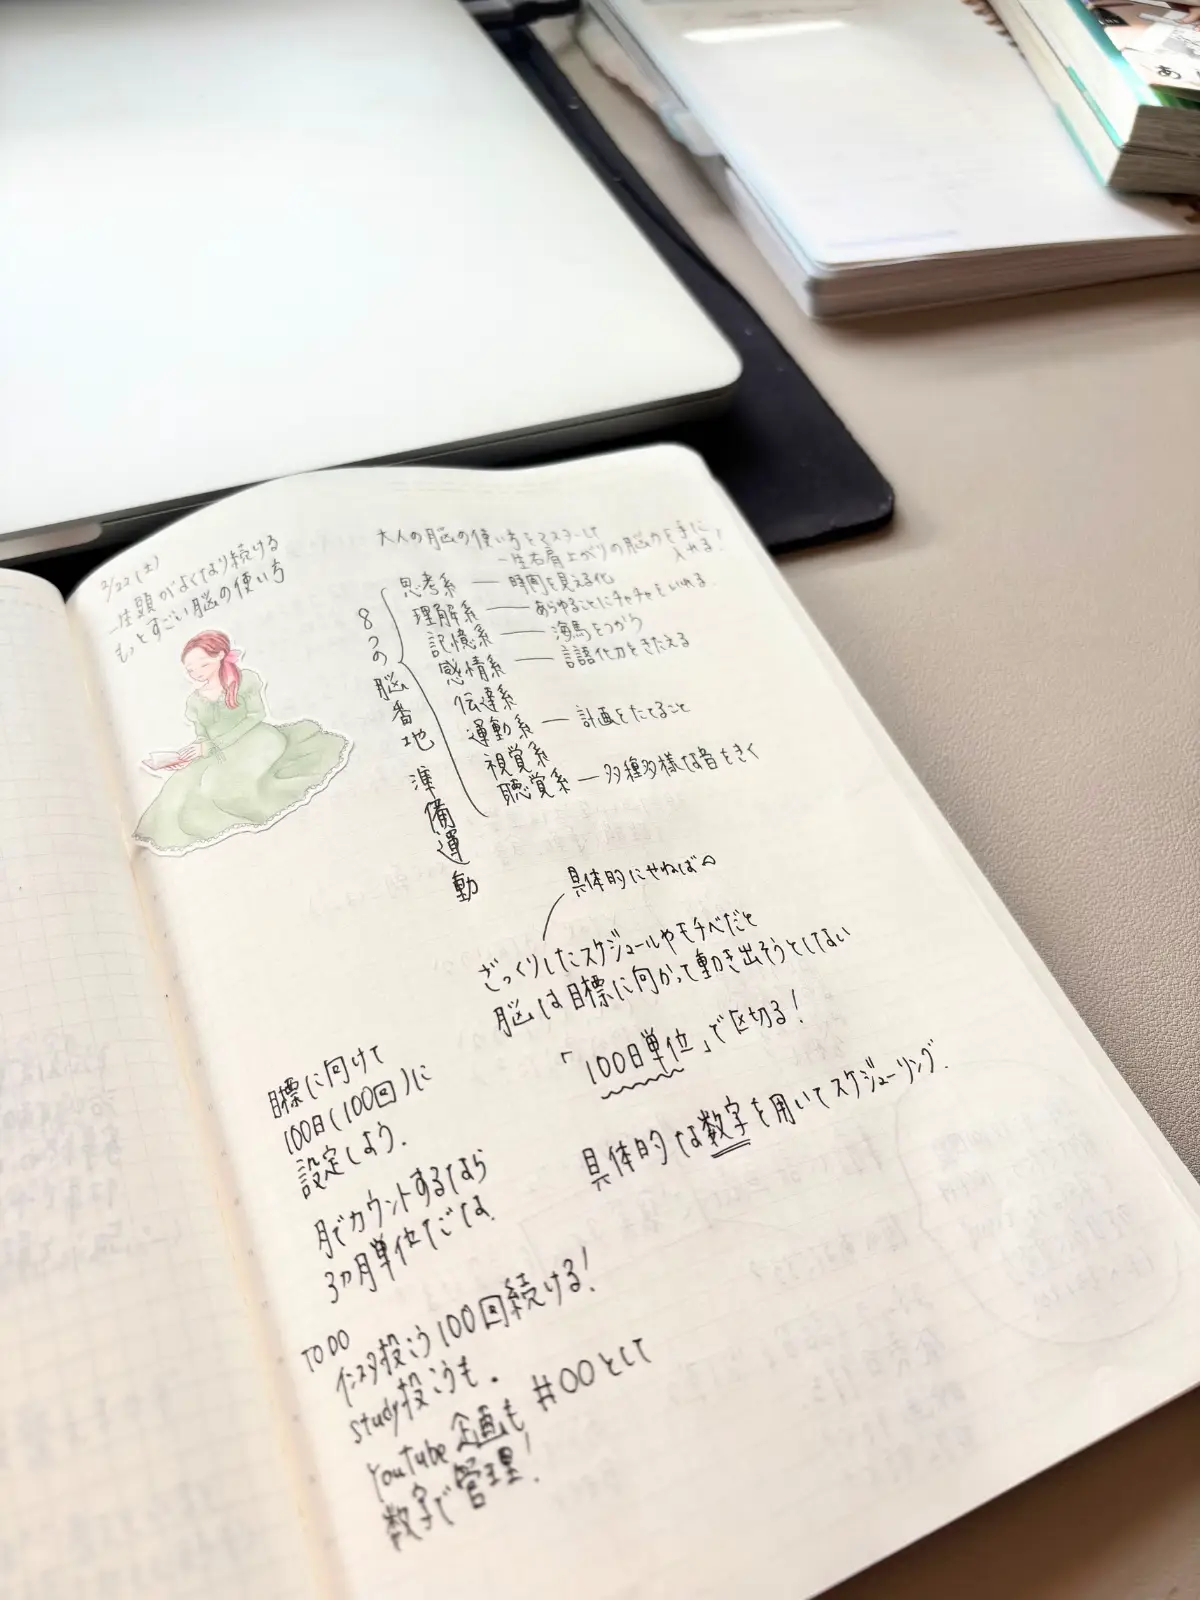 2/22(土)
一生頭がよくなり続ける
もっとすごい脳の使い方
大人の脳の使い方をマスターして
一生右肩上がりの脳力を手に
入れる!
8つの脳番地 準備運動
思考系 — 時間を見える化
理解系 — あらゆることにチャチャをいれる
記憶系 — 海馬をつかう
感情系 — 言語化力をきたえる
伝達系
運動系 — 計画をたてること
視覚系
聴覚系 — 多種多様な音をきく
具体的にせねば
ざっくりしたスケジュールやモチベだと
脳は目標に向かって動き出そうとしない
「100日単位」で区切る!
具体的な数字を用いてスケジューリング.
目標に向けて
100日(100回)に
設定しよう.
月でカウントするなら
3ヵ月単位だな.
TODO
インスタ投こう100回続ける!
study投こうも.
YouTube 企画も #〇〇として
数字で管理!
あ